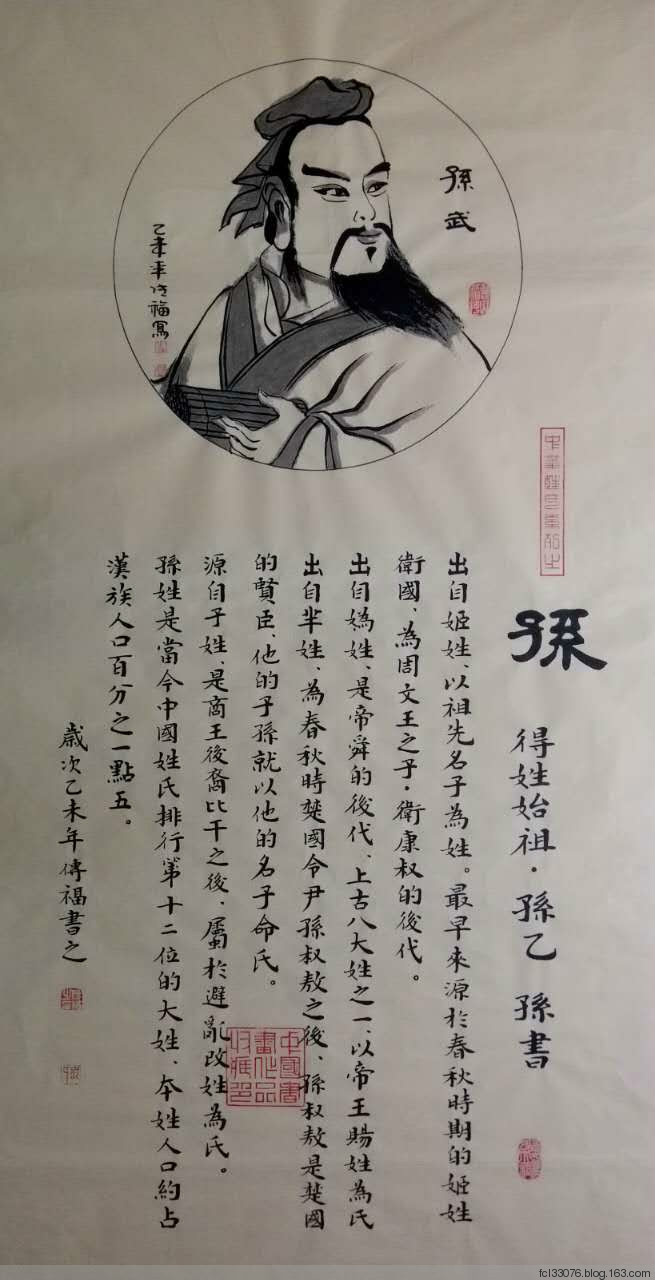 孫武
乙未年傳福寫
孫
得姓始祖·孫乙 孫書
出自姬姓、以祖先名子為姓。最早來源於春秋時期的姬姓
衛國、為周文王之子·衛康叔的後代。
出自媯姓、是帝舜的後代、上古八大姓之一、以帝王賜姓為氏
出自芈姓、為春秋時楚國令尹孫叔敖之後、孫叔敖是楚國
的賢臣、他的子孫就以他的名子命氏。
源自子姓、是商王後裔比干之後、屬於避亂改姓為氏。
孫姓是當今中國姓氏排行第十二位的大姓、本姓人口約占
漢族人口百分之一點五。
歲次乙未年傳福書之
中國書畫作品收藏印
fcl33076.blog.163.com